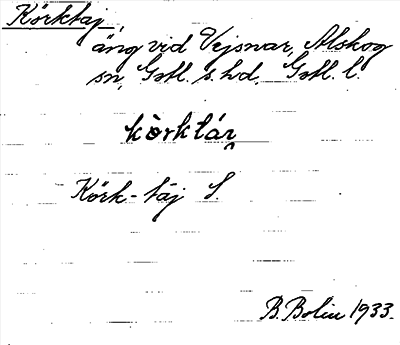 Körktaj,
äng vid Vejsnar, Alskog
sn, Gotl. s. hd, Gotl. l.
Körk-täj S.
B. Bolin 1933.